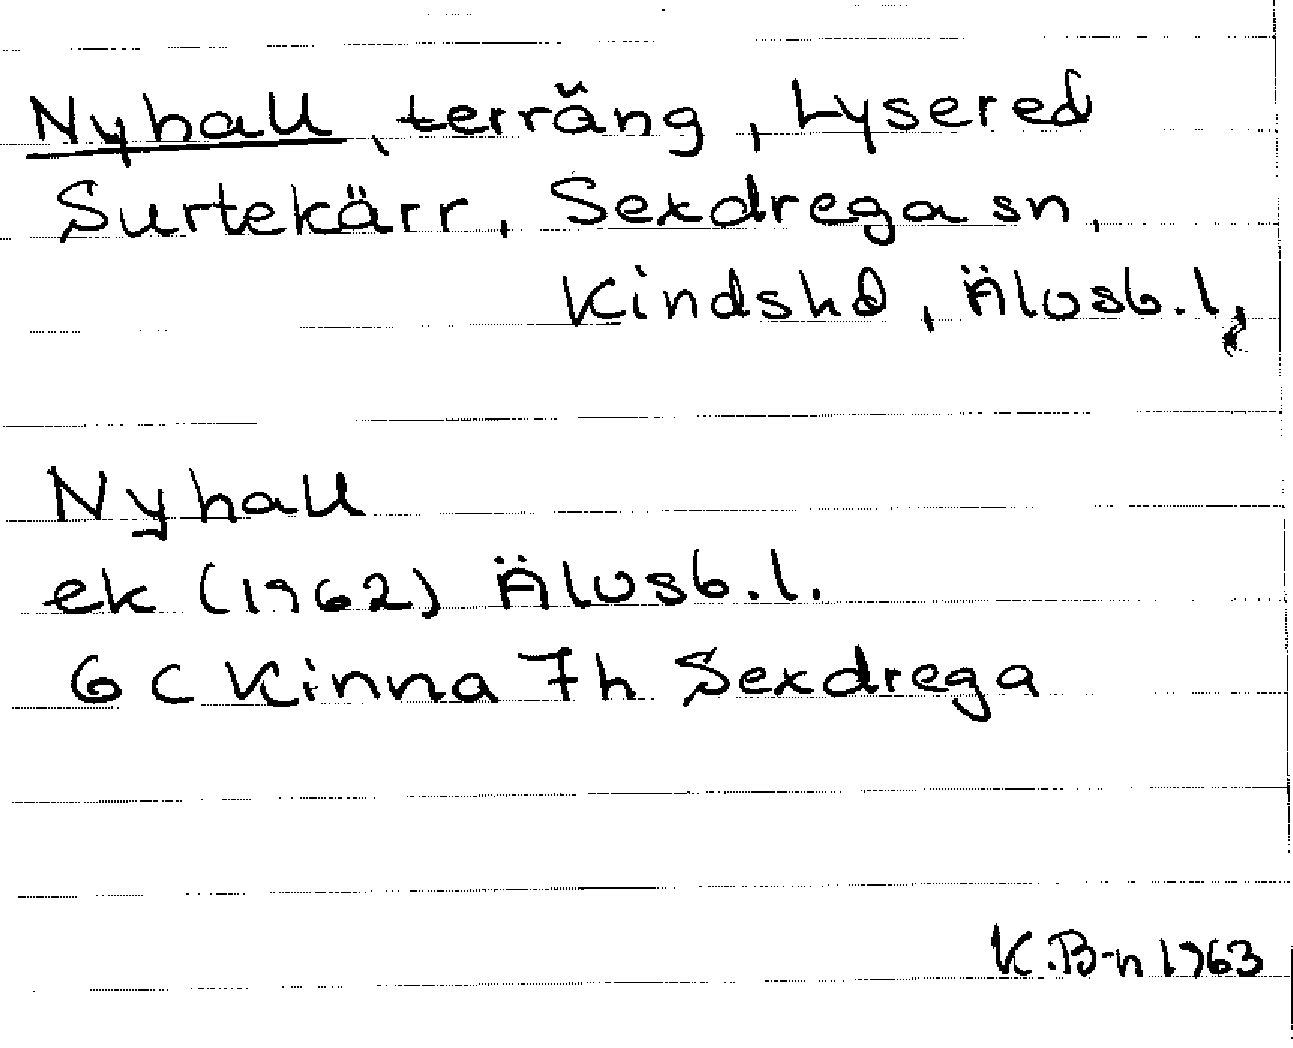 Nyhall, terräng, Lysered
Surtekärr, Sexdrega sn,
Kindshd, Älvsb.l,
Nyhall
ek (1962) Älvsb.l.
6 C Kinna 7h Sexdrega
K.B-n 1963